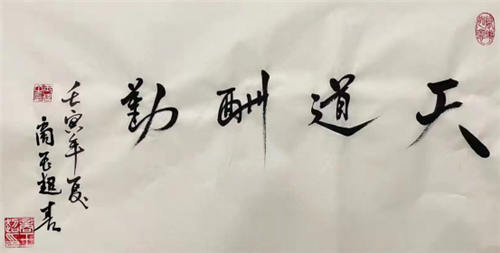 天道酬勤
壬寅年夏
商玉超书